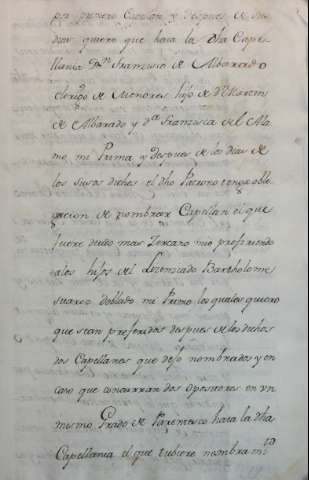 por primero Capellan y despues de sus
dias quiero que haia la dha Cape-
llania Dn Franzisco de Albarado
Clerigo de Menores, hijo de Dn Marcos
de Albarado y da Franzisca del Ala-
mo, mi Prima y despues de los dias de
los susos dichos el dho Patrono tenga obli-
gacion de nombrar Capellan el que
fuere deudo mas Zercano mio prefiriendo
a los hijos del Lizenciado Bartholome
Suarez doblado mi Primo los quales quiero
que sean preferidos despues de los dichos
dos Capellanes que dejo nombrados y en
caso que concurran dos Opositores en un
mismo Grado de Parentesco haia la dha
Capellania el que tubiere nombramto